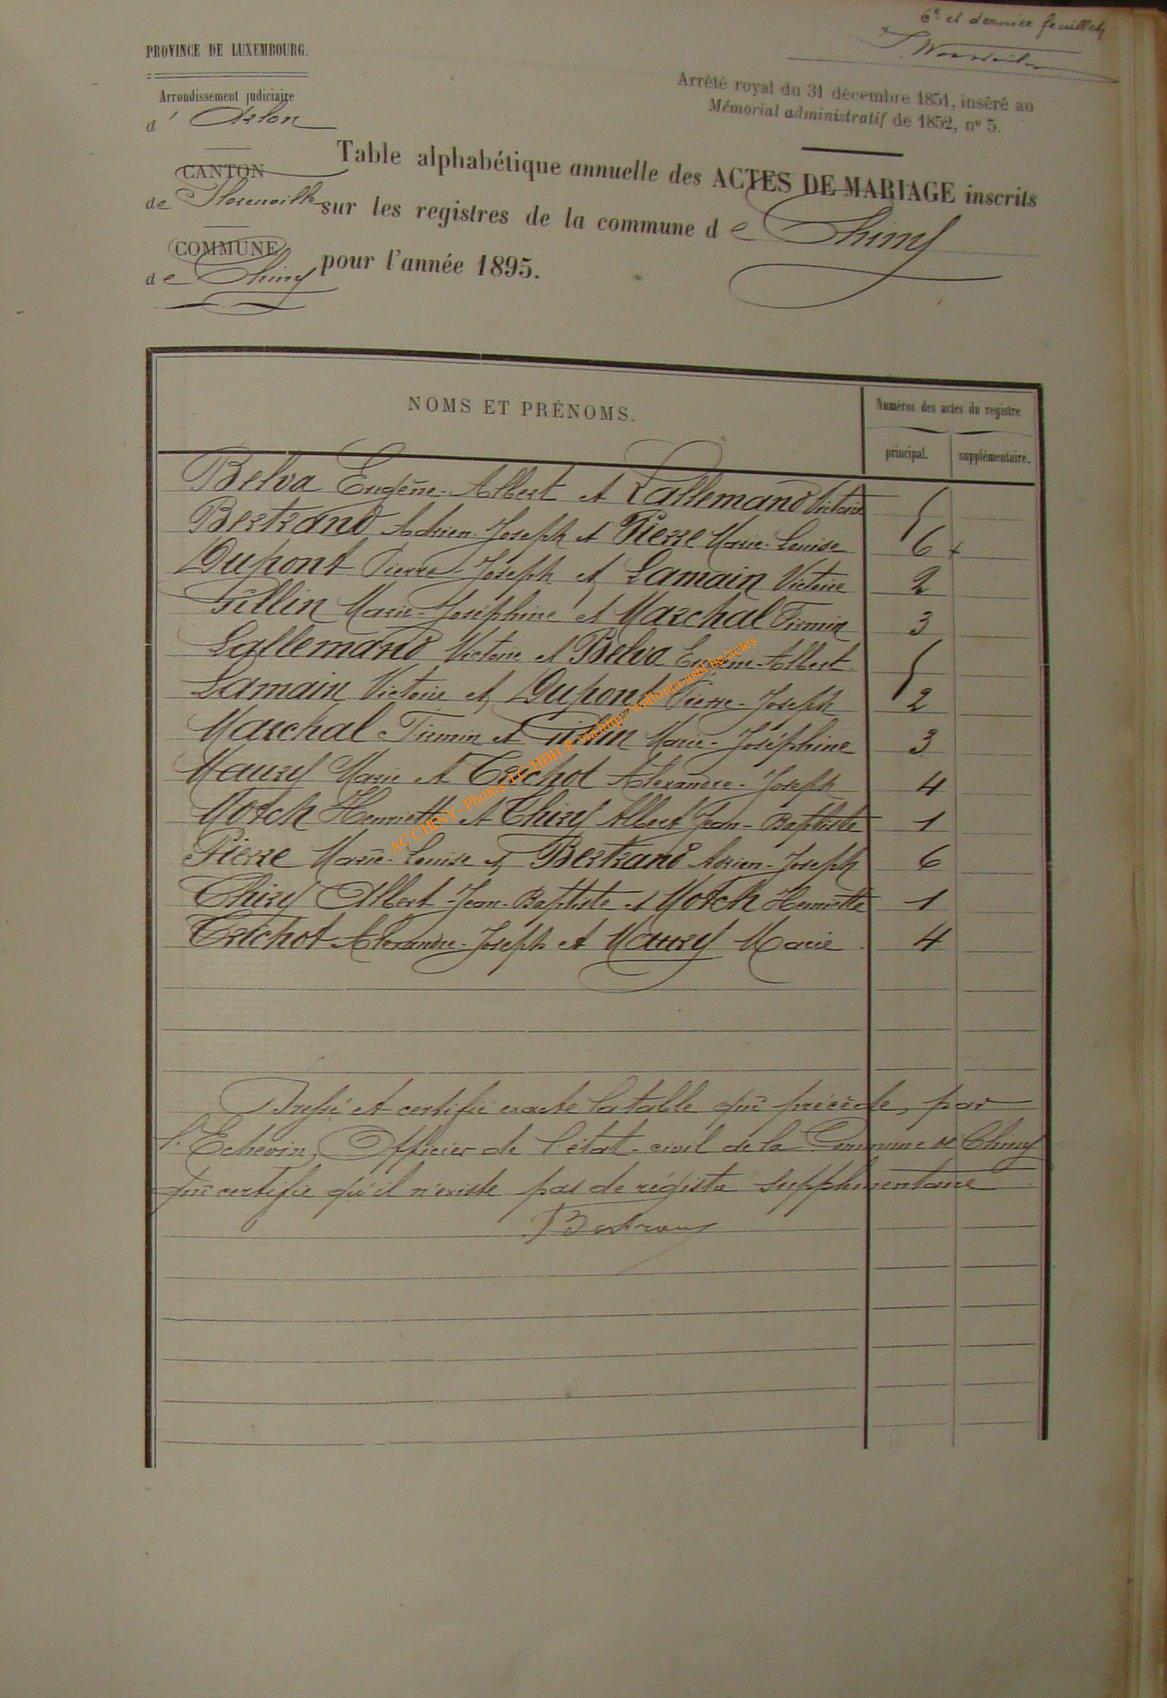 6e et dernier feuillet
PROVINCE DE LUXEMBOURG.
Arrondissement judiciaire
d' Arlon
CANTON
de Florenville
COMMUNE
de Chiny
Arrêté royal du 31 décembre 1851, inséré au
Mémorial administratif de 1852, nº 5.
Table alphabétique annuelle des ACTES DE MARIAGE inscrits
sur les registres de la commune de Chiny
pour l'année 1895.
NOMS ET PRÉNOMS.
Numéros des actes du registre
principal. supplémentaire.
Belva Eugène-Albert et Lallemand Victoire 5
Bertrand Adrien-Joseph et Pierre Marie-Louise 6
Dupont Pierre-Joseph et Lamain Victoire 2
Gillin Marie-Joséphine et Marchal Firmin 3
Lallemand Victoire et Belva Eugène-Albert 5
Lamain Victoire et Dupont Pierre-Joseph 2
Marchal Firmin et Gillin Marie-Joséphine 3
Maury Marie et Trichot Alexandre-Joseph 4
Motch Henriette et Thiry Albert Jean-Baptiste 1
Pierre Marie-Louise et Bertrand Adrien-Joseph 6
Thiry Albert-Jean-Baptiste et Motch Henriette 1
Trichot Alexandre-Joseph et Maury Marie 4
Dressé et certifié exacte la table qui précède, par
l'Echevin, Officier de l'état-civil de la Commune de Chiny
qui certifie qu'il n'existe pas de registre supplémentaire
Bertrand